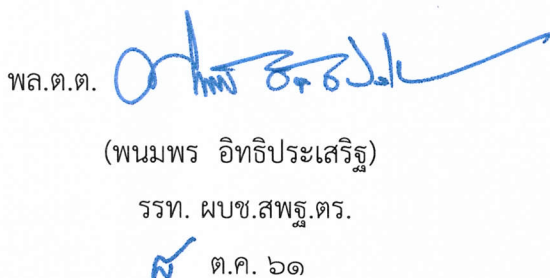 พล.ต.ต.
(พนมพร อิทธิประเสริฐ)
รรท. ผบช.สพฐ.ตร.
ต.ค. ๖๑